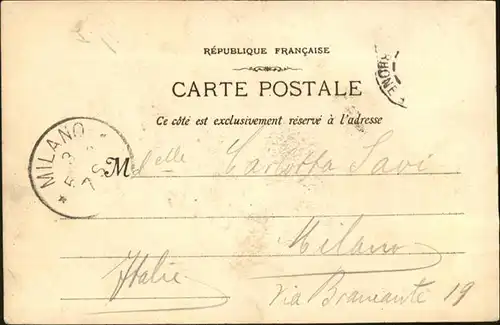 RÉPUBLIQUE FRANÇAISE
CARTE POSTALE
Ce côté est exclusivement réservé à l'adresse
MILANO
Mdelle Carlotta Savi
Milano
Italie
Via Bramante 19